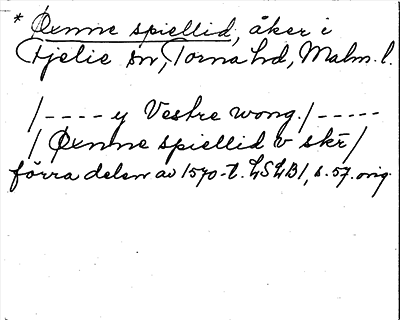 * Øenne spiellid, åker i
Fjelie sn, Torna hd, Malm. l.
/---- y Vestre wong./-----
/ Øenne spiellid v skr̄/
förra delen av 1570-t. LSLB1, s. 57. orig.